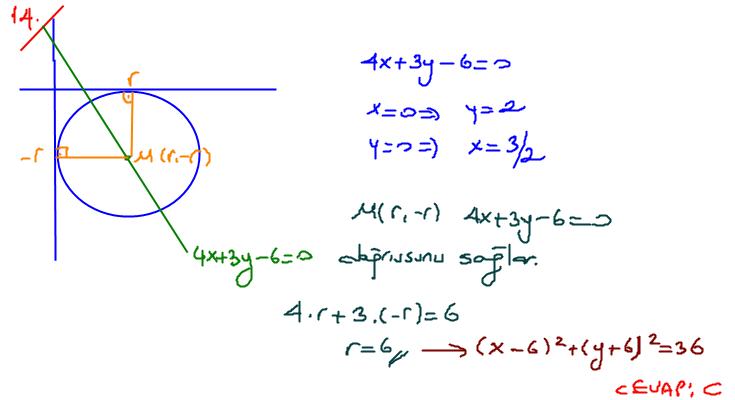 14.
r
-r
M(r,-r)
4x+3y-6=0
4x+3y-6=0
x=0⇒ y=2
y=0⇒ x=3/2
M(r,-r) 4x+3y-6=0
doğrusunu sağlar.
4.r+3.(-r)=6
r=6 → (x-6)²+(y+6)²=36
CEVAP: C